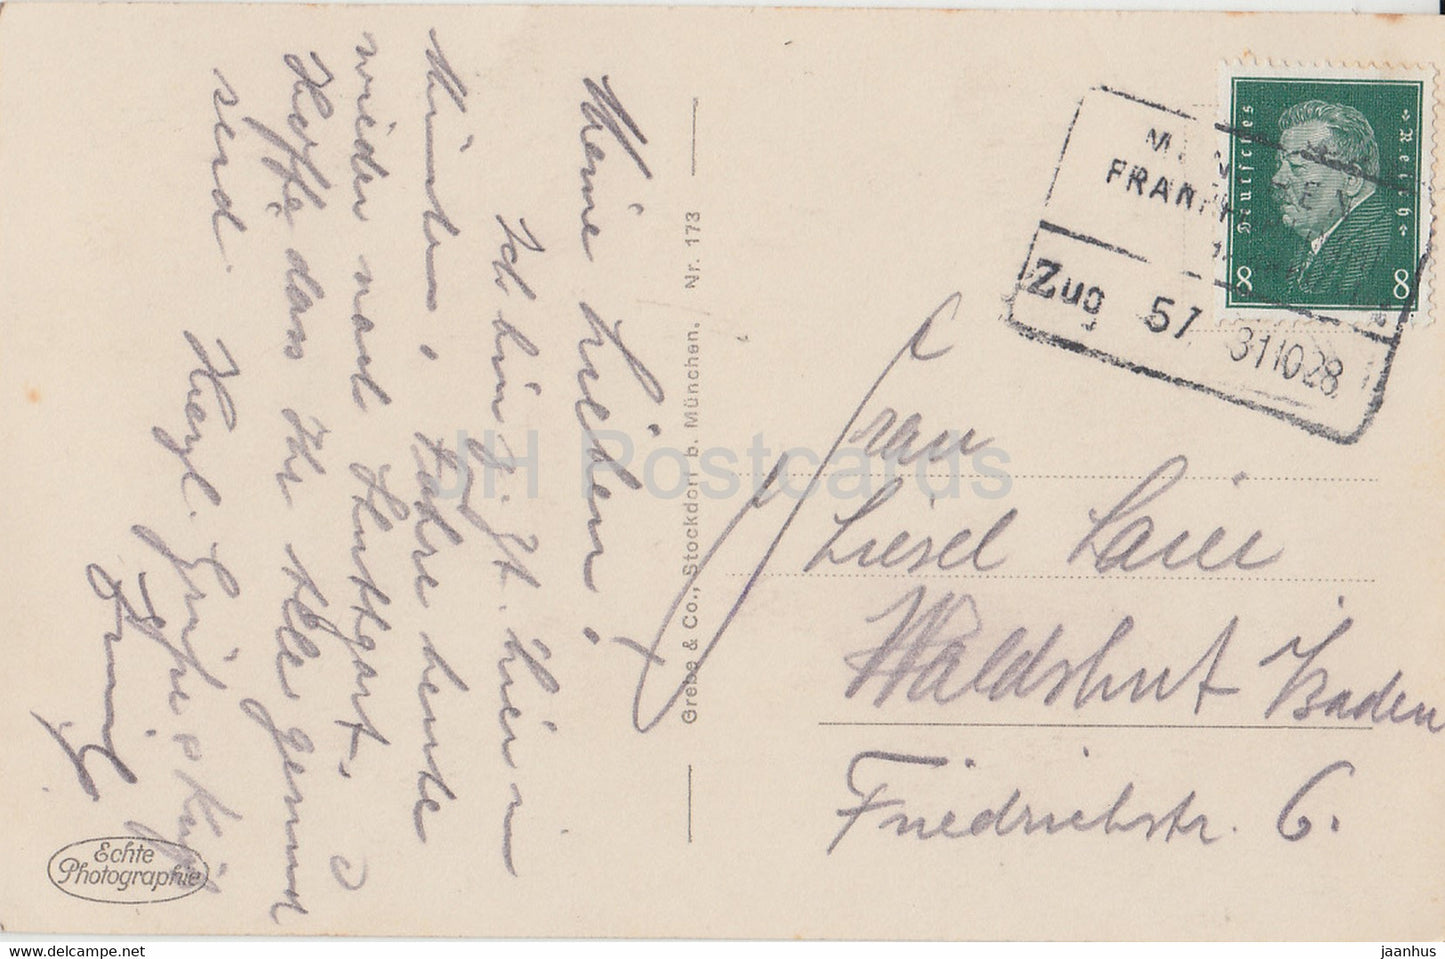 Meine Lieben!
Ich bin z. Zt. hier in
München, fahre heute
wieder nach Stuttgart.
Hoffe dass Ihr Alle gesund
seid.
Herzl. Grüsse &
Grebe & Co., Stockdorf b. München. Nr. 173
Echte
Photographie
Deutsches Reich
8 8
FRAN
Zug 57 31.10.28
Frau
Liesel Laier
Waldshut Baden
Friedrichstr. 6.
JH Postcards
https://www.delcampe.net
jaanhus